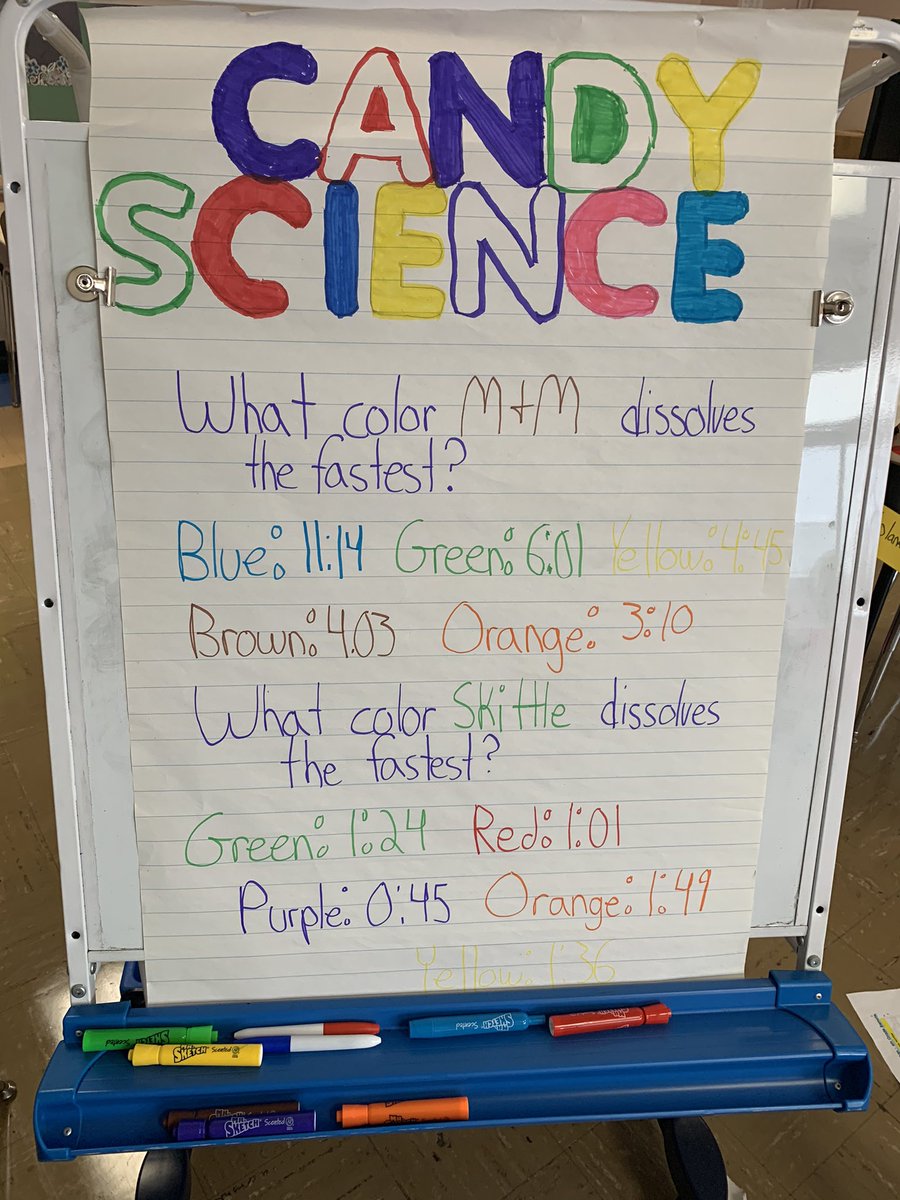 CANDY
SCIENCE
What color M+M dissolves
the fastest?
Blue: 11:14 Green: 6:01 Yellow: 4:45
Brown: 4.03 Orange: 3:10
What color Skittle dissolves
the fastest?
Green: 1:24 Red: 1:01
Purple: 0:45 Orange: 1:49
Yellow: 1:36
SKETCH Scented
MR. SKETCH Scented